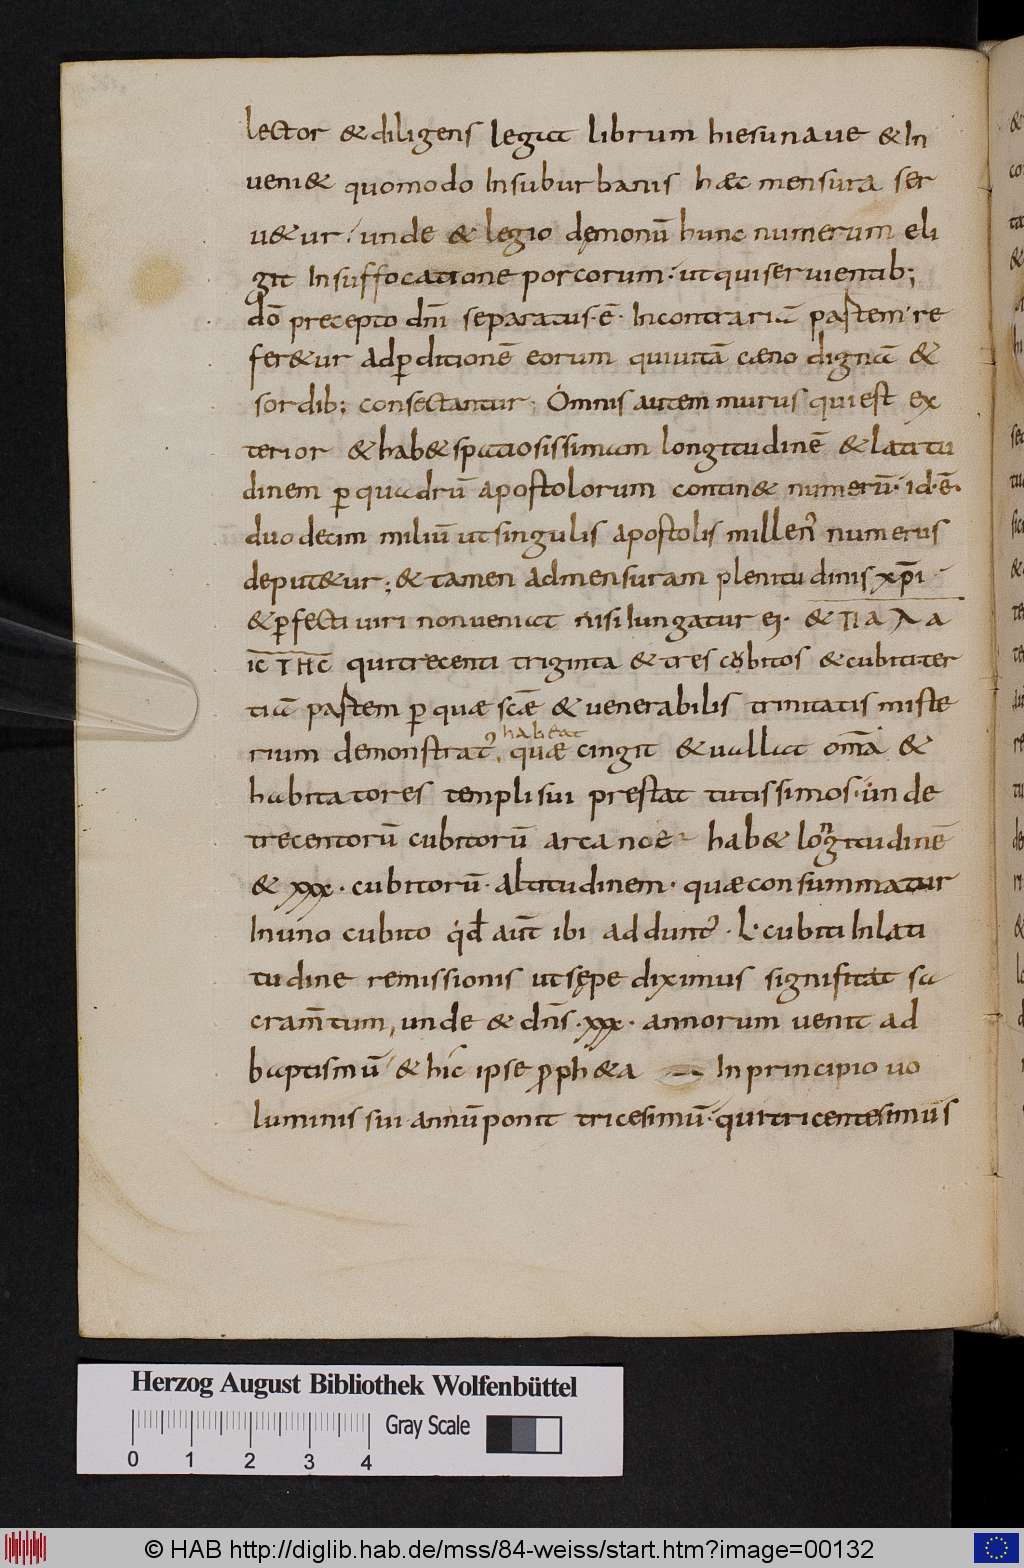 lector & diligens legat librum hiesu naue & in
ueni& quomodo In suburbanis hæc mensura ser
u&ur; unde & legio dęmonū hunc numerum eli
git In suffocatione porcorum; ut qui seruientib;
dō precepto dn̄i separatus·ē· In contrariā partem re
fer&ur ad ꝑditionē eorum qui uitā cæno dignā &
sordib; consectantur; Omnis autem murus qui est ex
terior & hab& spatiosissimam longitudinē & latitu
dinem ꝑ quadrū apostolorum contin& numerū· id·ē·
duodecim miliū ut singulis apostolis millenꝰ numerus
deput&ur; & tamen ad mensuram plenitudinis xp̄i
& ꝑfecti uiri non ueniat nisi Iungatur ei·
ic THC qui trecenti triginta & tres cubitos & cubiti ter
tiā partem ꝑ quæ scǣ & uenerabilis trinitatis miste
habeat
rium demonstratꝰ, quæ cingit & uallat om̄a &
habitatores templi sui prestat tutissimos· unde
trecentorū cubitorū arca noe hab& longitudinē
& xxx· cubitorū· altitudinem· quæ consummatur
In uno cubito qd̄ aūt ibi adduntꝰ· L· cubiti In lati
tudine remissionis ut sępe diximus significat sa
cram̄tum, unde & dn̄s· xxx· annorum uenit ad
baptismū & hic ipse ꝓph&a In principio uo
luminis sui annū ponit tricesimū· qui tricentesimus
Herzog August Bibliothek Wolfenbüttel
Gray Scale
0 1 2 3 4
© HAB http://diglib.hab.de/mss/84-weiss/start.htm?image=00132